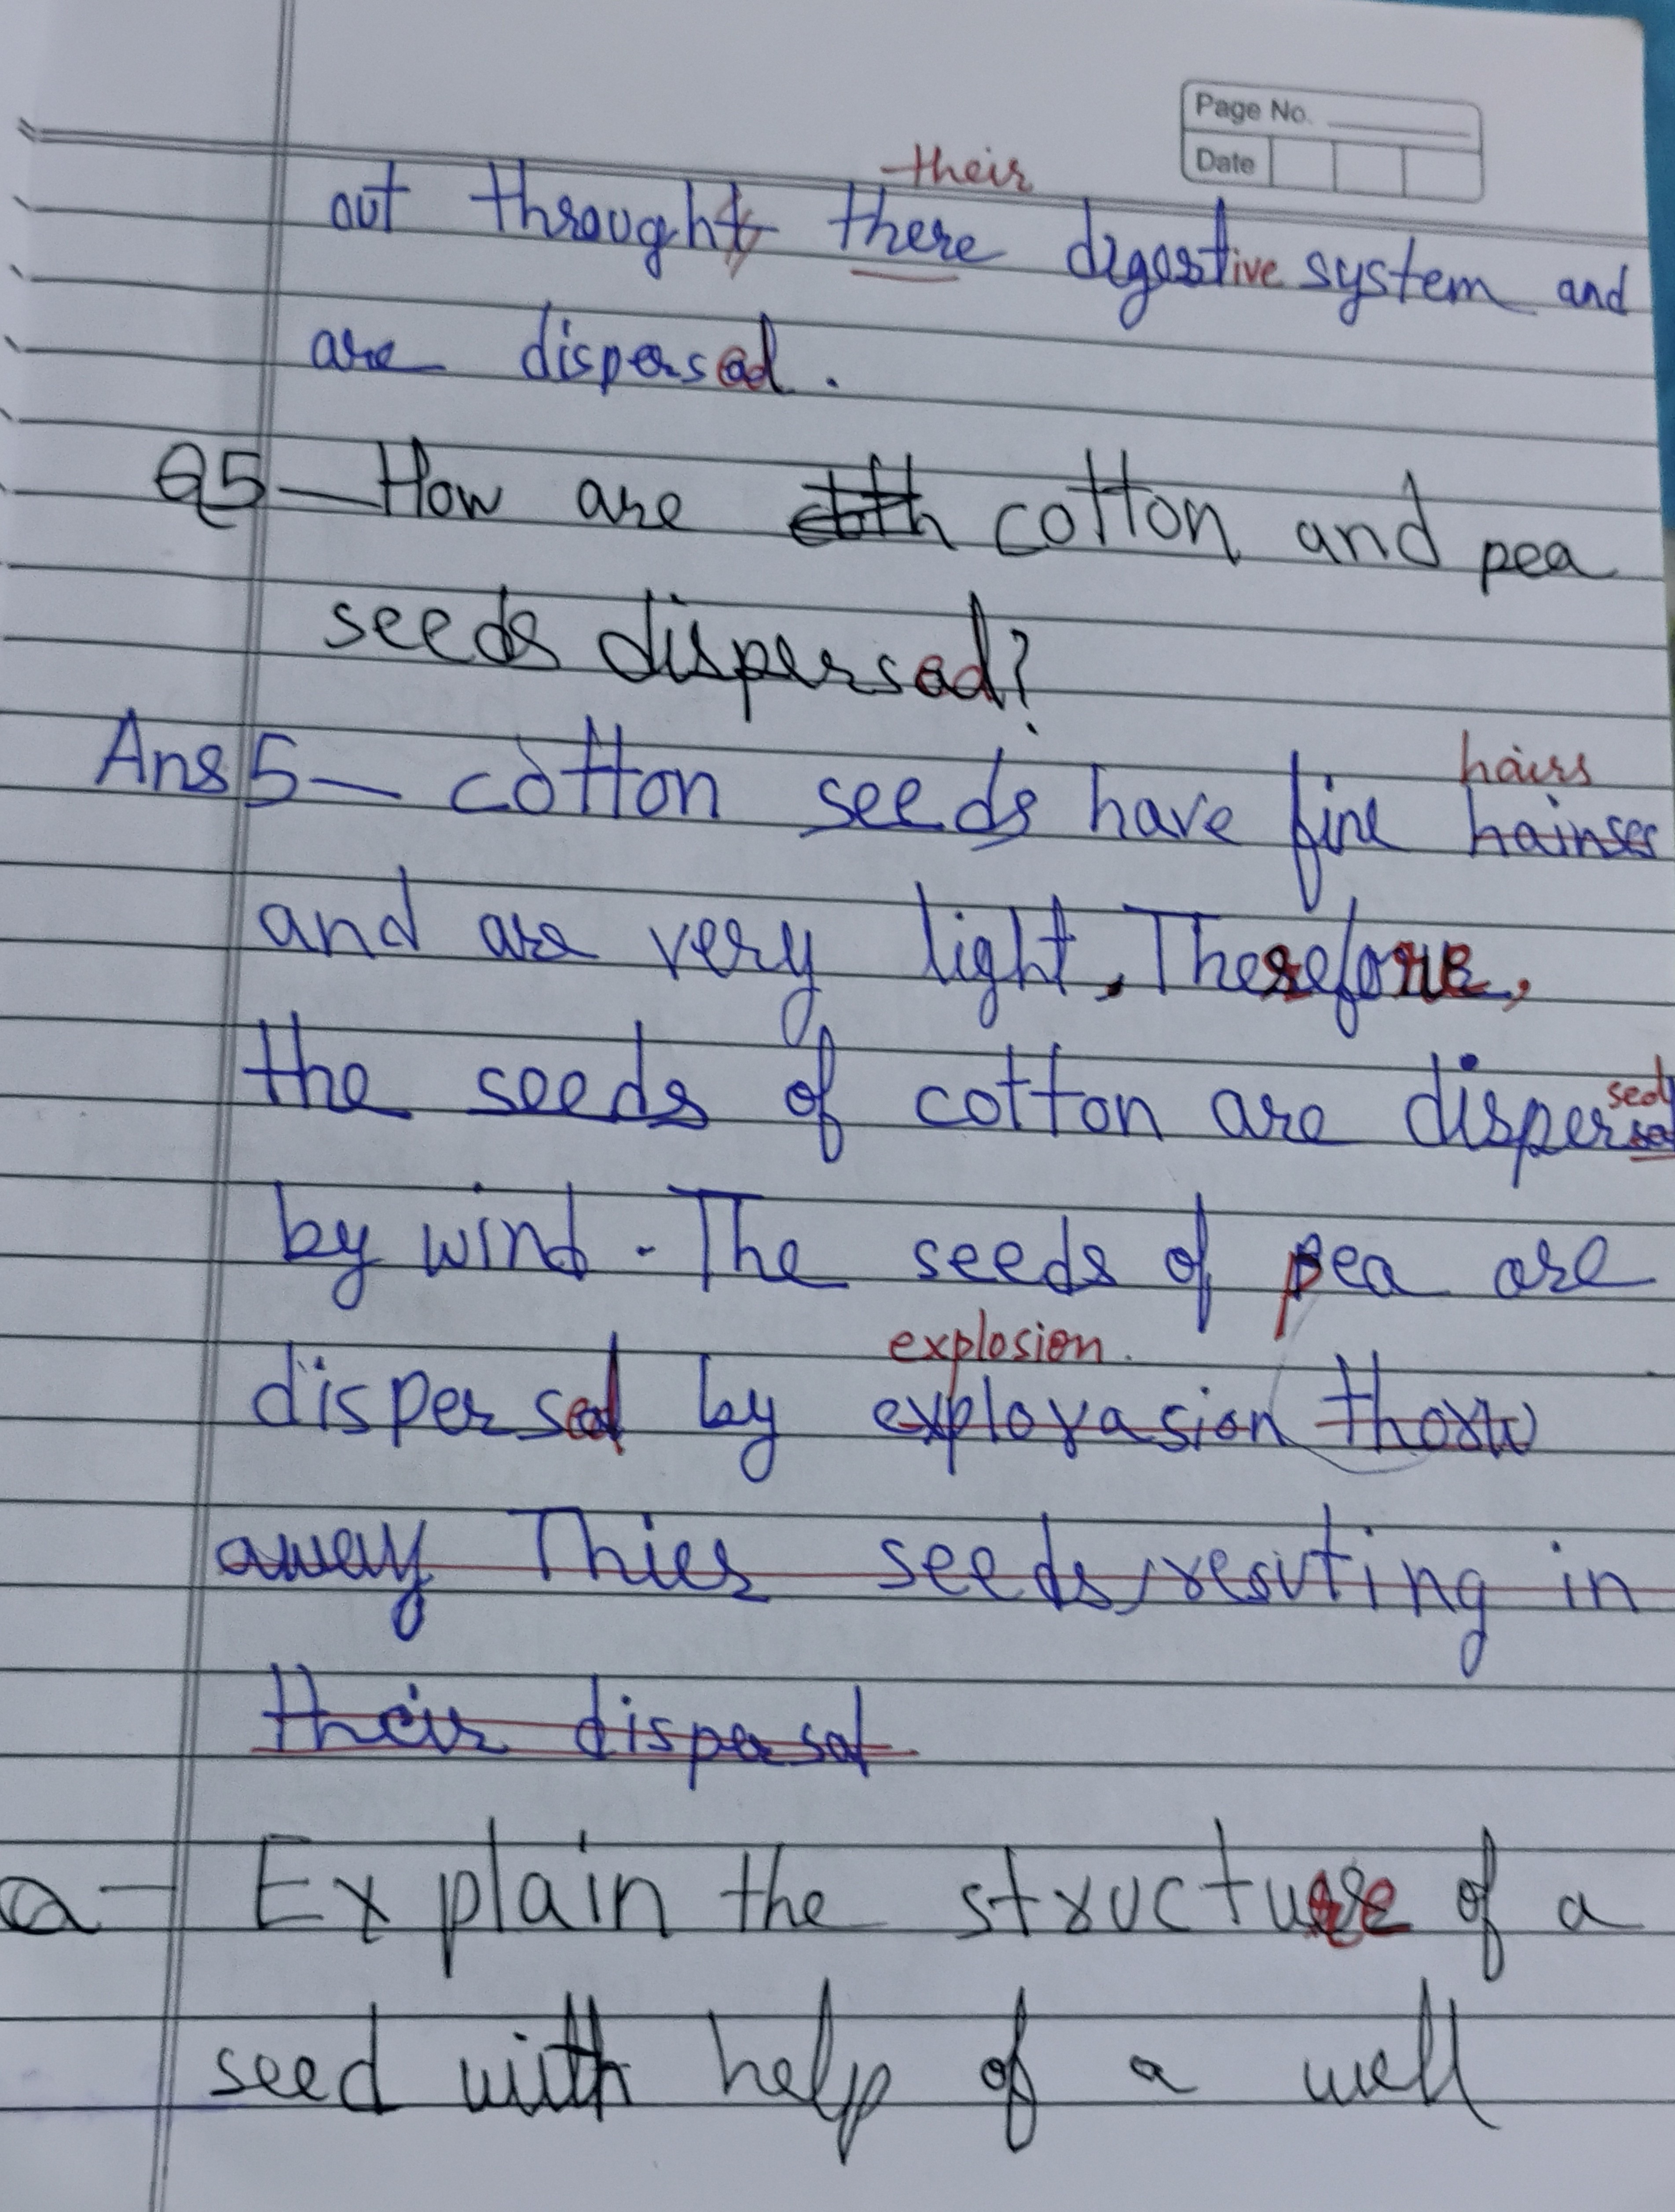 Page No.
Date
their
out throught there digestive system and
are dispersed.
Q5— How are cotton and pea
seeds dispersed?
hairs
Ans 5— cotton seeds have fine hainses
and are very light, Therefore,
sed
the seeds of cotton are disper
by wind. The seeds of pea are
explosion.
dispersed by explovasion thorw
away Thier seeds, resuting in
their dispersal
a— Explain the structure of a
seed with help of a well